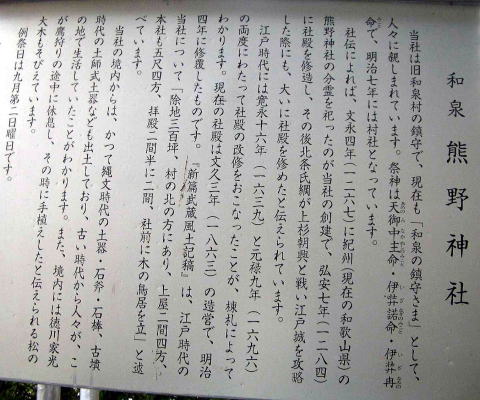 和泉 熊野神社
当社は旧和泉村の鎮守で、現在も「和泉の鎮守さま」として、
人々に親しまれています。祭神は天御中主命・伊弉諾命・伊弉冉
命で、明治七年には村社となっています。
社伝によれば、文永四年(一二六七)に紀州(現在の和歌山県)の
熊野神社の分霊を祀ったのが当社の創建で、弘安七年(一二八四)
に社殿を修造し、その後北条氏綱が上杉朝興と戦い江戸城を攻略
した際にも、大いに社殿を修めたと伝えられています。
江戸時代には寛永十六年(一六三九)と元禄九年(一六九六)
の両度にわたって社殿の改修をおこなったことが、棟札によって
わかります。現在の社殿は文久三年(一八六三)の造営で、明治
四年に修覆したものです。『新篇武蔵風土記稿』は、江戸時代の
当社について「除地三百坪、村の北の方にあり、上屋二間四方、
本社も五尺四方、拝殿二間半に二間、社前に木の鳥居を立」と述
べています。
当社の境内からは、かつて縄文時代の土器・石斧・石棒、古墳
時代の土師式土器なども出土しており、古い時代から人々が、こ
の地で生活していたことがわかります。また、境内には徳川家光
が鷹狩りの途中に休息し、その時に手植えしたと伝えられる松の
大木もそびえています。
例祭日は九月第二日曜日です。